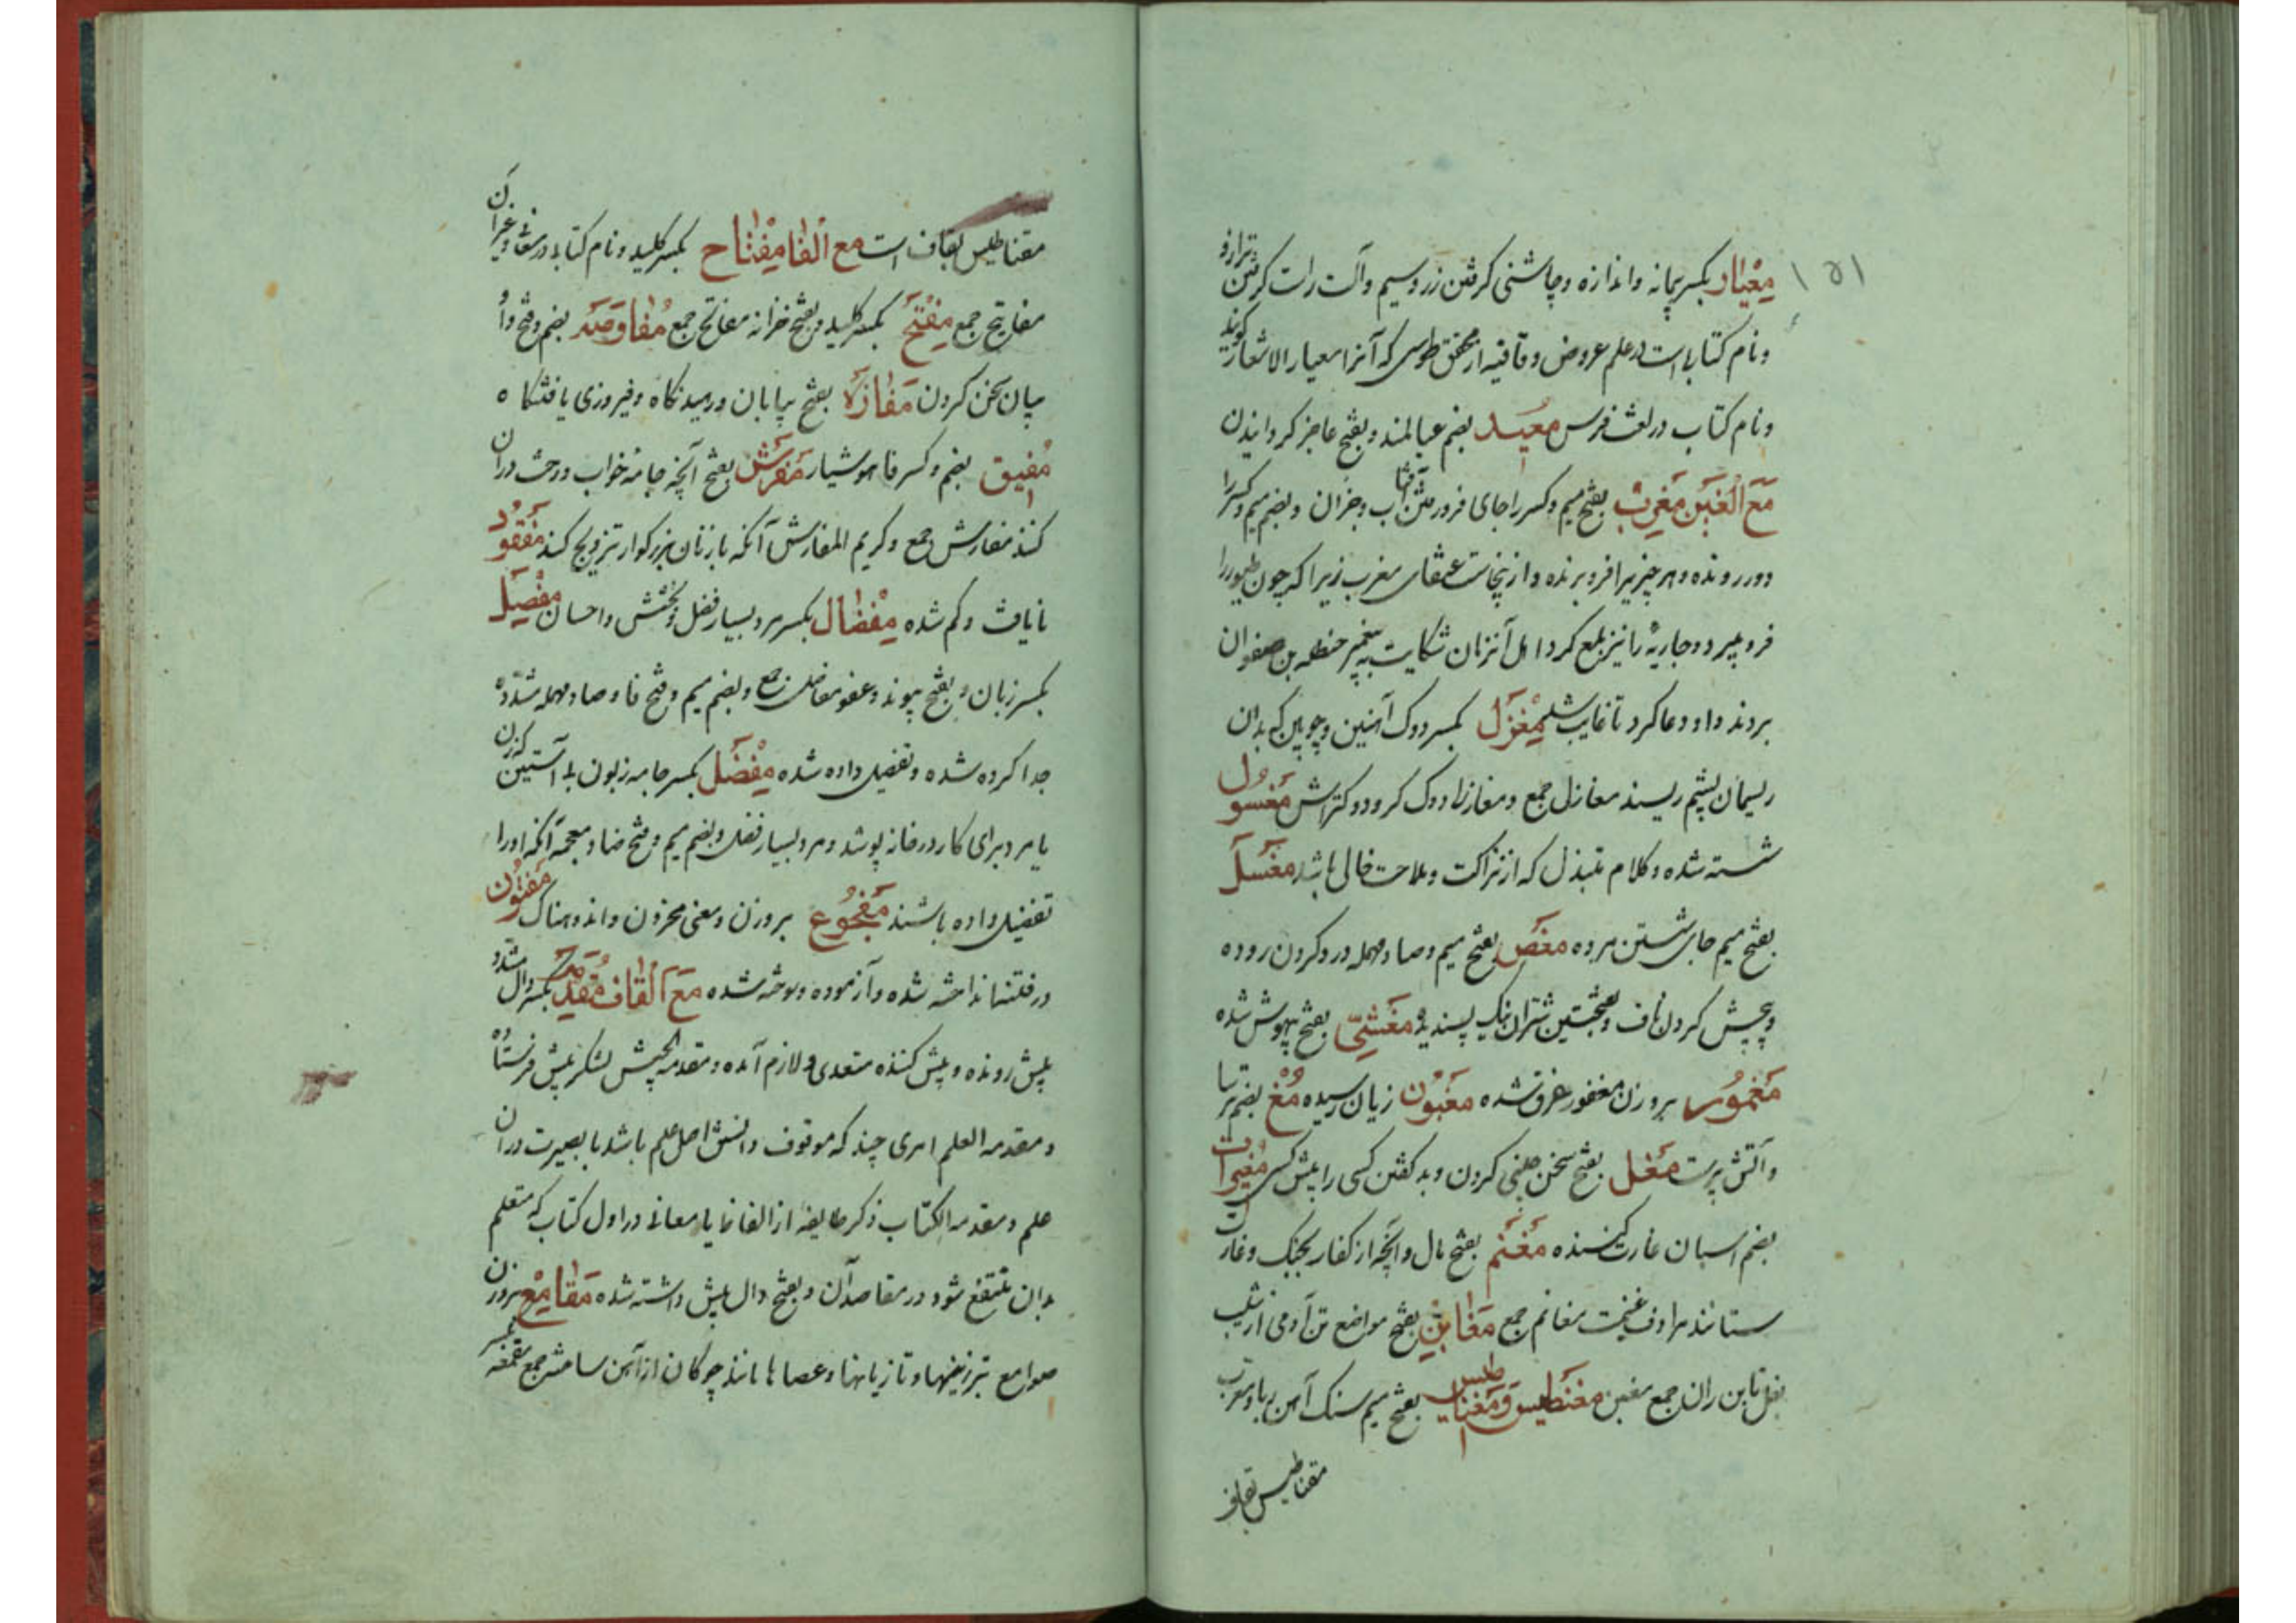 ۱۵۱
معیار بکسر پیمانه و اندازه و چاشنی گرفتن زر و سیم و آلت راست گرفتن ترازو
و نام کتابی است در علم عروض و قافیه از محقق طوسی که آنرا معیار الاشعار گویند
و نام کتاب در لغت فرس معید بضم عیالمند و بفتح عاجز گردانیدن
مع الغین مغرب بفتح میم و کسر را جای فرو رفتن آفتاب و جزان و بضم میم و کسر را
دور رونده و هر چیزیرا فرو برنده و ازینجاست عنقای مغرب زیرا که چون طیور را
فرو میبرد و جاریهٔ را نیز بلع کرد اهل آنزمان شکایت به پیغمبر حنظله بن صفوان
بردند و او دعا کرد تا غایب شد مغزل بکسر دوک آهنین و چوبین که بدان
ریسمان پشم ریسند مغازل جمع و مغازل دوک گر و دوکتراش مغسول
شسته شده و کلام مبتذل که از نزاکت و ملاحت خالی باشد مغسل
بفتح میم جای شستن مرده مغص بفتح میم و صاد مهمله درد کردن روده
و پیچش کردن ناف و بفتحتین شتران نیک پسندیده مغشی بفتح بیهوش شده
مغمور بر وزن مغفور غرق شده مغبون زیان رسیده مغ بضم ترسا
و آتش پرست مغل بفتح سخن چینی کردن و بد گفتن کسی را پیش کسی مغیرات
بضم اسبان غارت کننده مغنم بفتح مال و آنچه از کفار بجنگ و غارت
ستانند مرادف غنیمت مغانم جمع مغابن بفتح مواضع تن آدمی از شیب
بغل تا بن ران جمع مغبن مغنطیس و مغناطیس بفتح میم سنگ آهن ربا و معرب
مقناطیس بقاف
مقناطیس بقاف است مع الفا مفتاح بکسر کلید و نام کتابی در معانی و غیر آن
مفاتیح جمع مفتح بکسر کلید و بفتح خزانه مفاتح جمع مفاوضه بضم و فتح واو
بیان سخن کردن مفازه بفتح بیابان و رمیدنگاه و فیروزی یافتنگاه
مفیق بضم و کسر فا هوشیار مفرش بفتح آنچه جامه خواب و رخت در آن
کنند مفارش جمع و کریم المفارش آنکه با زنان بزرگوار تزویج کند مفقود
نایافت و گم شده مفضال بکسر مرد بسیار فضل و بخشش و احسان مفصل
بکسر زبان و بفتح پیوند و عضو مفاصل جمع و بضم میم و فتح فا و صاد مهمله مشدده
جدا کرده شده و تفصیل داده شده مفضل بکسر جامه زبون بی آستین که زن
یا مرد برای کار در خانه پوشد و مرد بسیار فضل و بضم میم و فتح ضاد معجمه آنکه او را
تفضیل داده باشند مفجوع بر وزن و معنی محزون و اندوهناک مفتون
در فتنه انداخته شده و آزموده و سوخته شده مع القاف مقدمه بکسر دال مشدد
پیش رونده و پیش کننده متعدی و لازم آمده و مقدمه الجیش لشکر پیش فرستاده
و مقدمه العلم امری چند که موقوف دانستن اصل علم باشد با بصیرت در آن
علم و مقدمه الکتاب ذکر طایفه از الفاظ یا معانی در اول کتاب که متعلم
بدان منتفع شود در مقاصد آن و بفتح دال پیش داشته شده مقامع بر وزن
صوامع تبرزینها و تازیانها و عصاها مانند چوگان از آهن ساخته جمع مقمعه